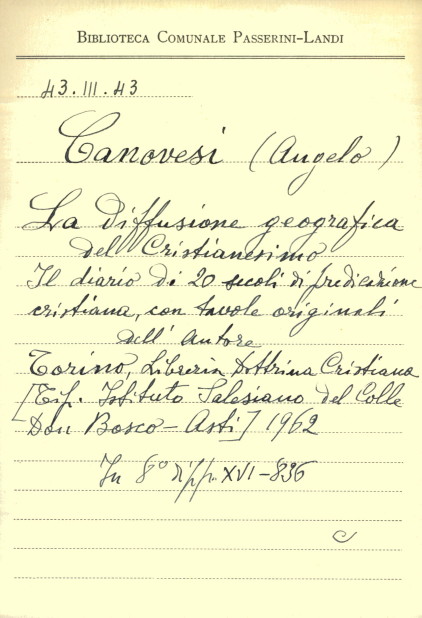 BIBLIOTECA COMUNALE PASSERINI-LANDI
43.III.43
Canovesi (Angelo)
La diffusione geografica
del Cristianesimo
Il diario di 20 secoli di predicazione
cristiana, con tavole originali
dell' autore
Torino, Libreria Dottrina Cristiana
[Tip. Istituto Salesiano del Colle
Don Bosco - Asti] 1962
In 8° di pp. XVI-836